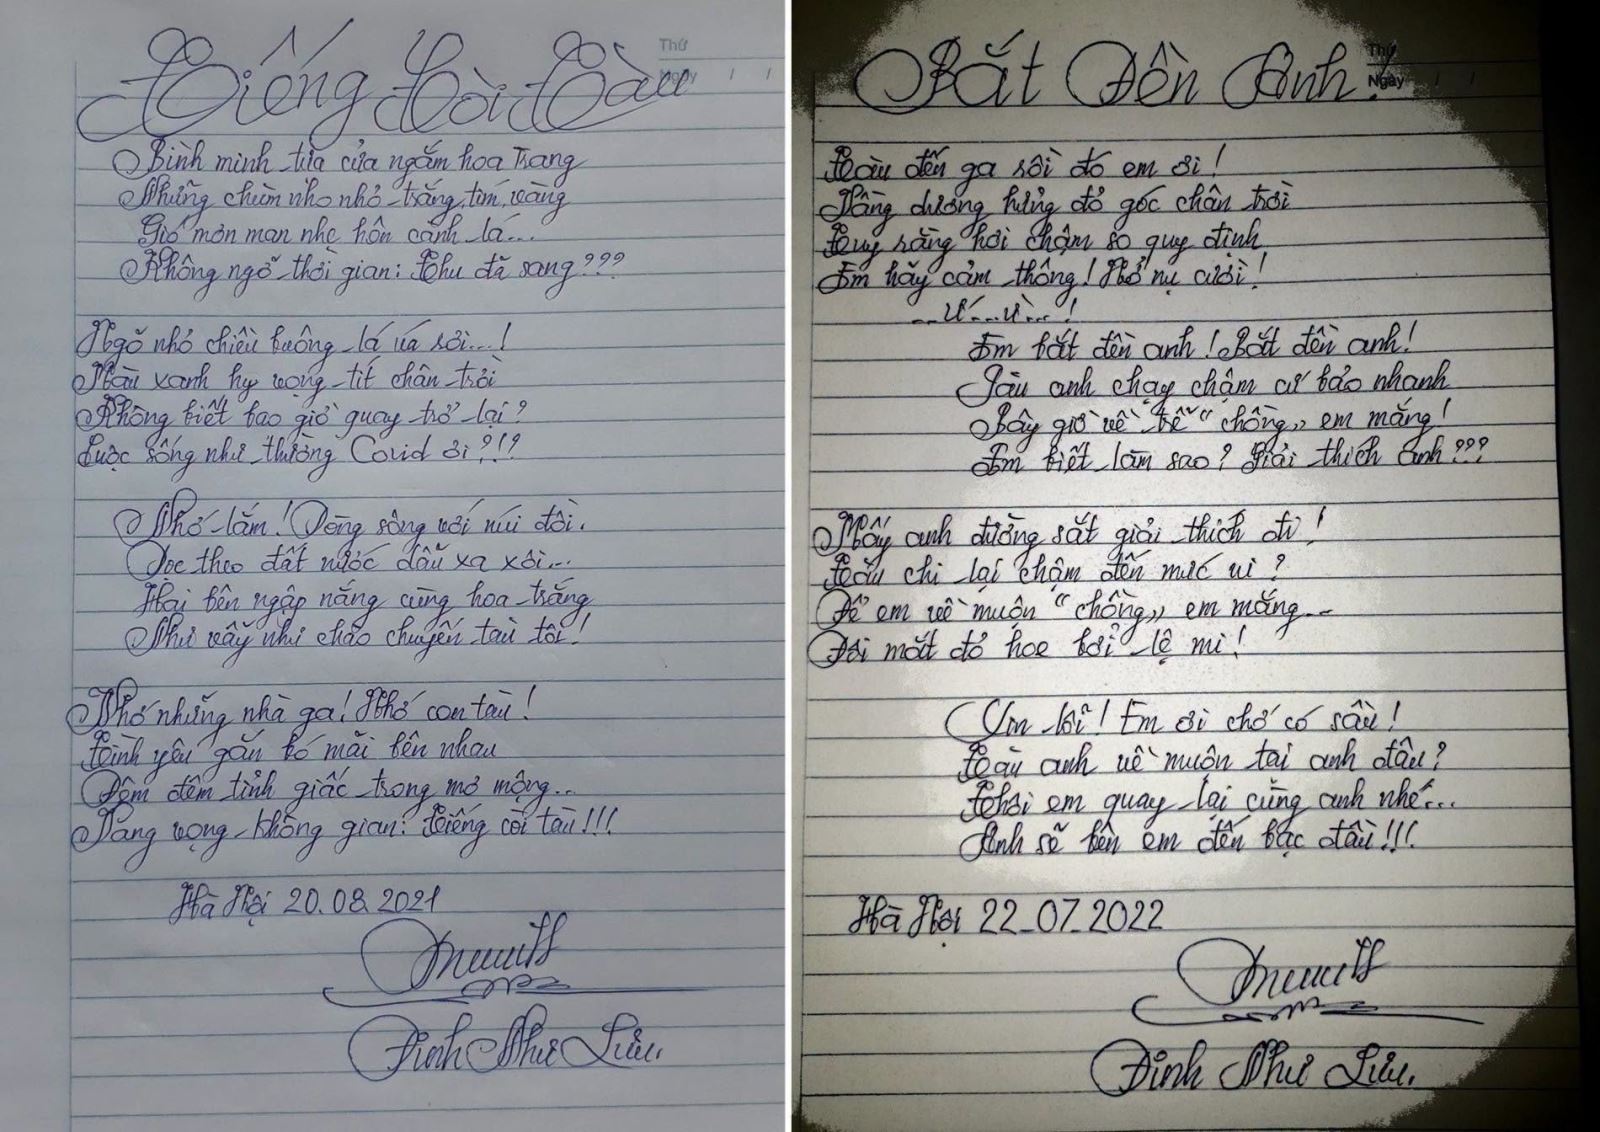 Tiếng Còi Tàu
Thứ
Ngày / /
Bình minh tựa cửa ngắm hoa Trang
Những chùm nho nhỏ trắng, tím, vàng
Gió mơn man nhẹ hôn cành lá...
Không ngỡ thời gian: Thu đã sang???
Ngõ nhỏ chiều buông lá úa rồi....!
Màu xanh hy vọng tít chân trời
Không biết bao giờ quay trở lại?
Cuộc sống như thường Covid ơi?!?
Nhớ lắm! Dòng sông với núi đồi.
Dọc theo đất nước dẫu xa xôi...
Hai bên ngập nắng cùng hoa trắng
Như vẫy như chào chuyến tàu tôi!
Nhớ những nhà ga! Nhớ con tàu!
Tình yêu gắn bó mãi bên nhau
Đêm đêm tỉnh giấc trong mơ mộng...
Vang vọng không gian: Tiếng còi tàu!!!
Hà Nội 20.08.2021
Đinh Như Lưu.
Bắt Đền Anh!
Thứ
Ngày / /
Tàu đến ga rồi đó em ơi!
Vầng dương hửng đỏ góc chân trời
Tuy rằng hơi chậm so quy định
Em hãy cảm thông! Nhớ nụ cười!
...Ứ...ừ...!
Em bắt đền anh! Bắt đền anh!
Tàu anh chạy chậm cứ bảo nhanh
Bây giờ về trễ "chồng" em mắng!
Em biết làm sao? Giải thích anh???
Mấy anh đường sắt giải thích đi!
Tàu chi lại chậm đến mức ni?
Để em về muộn "chồng" em mắng...
Đôi mắt đỏ hoe bởi lệ mi!
Ừm lỗi! Em ơi chớ có sầu!
Tàu anh về muộn tại anh đâu?
Thôi em quay lại cùng anh nhé...
Anh sẽ bên em đến bạc đầu!!!
Hà Nội 22-07-2022
Đinh Như Lưu.